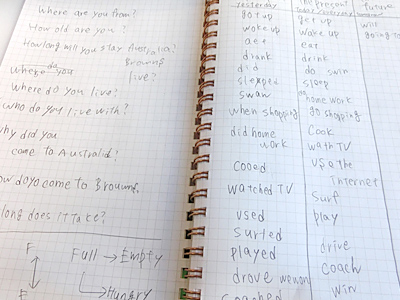 Where are you from?
How old are you?
How long will you stay Australia?
Where do you live?
Where do you live?
who do you live with?
why did you
come to Australia?
How do yo come to
long does it take?
F
Full → Empty
F
Hungry
yesterday
got up
woke up
aet
drank
did
sleeped
swam
when shopping
did home
work
Cooed
watched TV
used
surfed
played
drove
Coached
present
get up
wake up
eat
drink
do swim
sleep
do
home work
go shopping
Cook
wath TV
use the
Internet
surf
play
drive
coach
win
future
will
going to